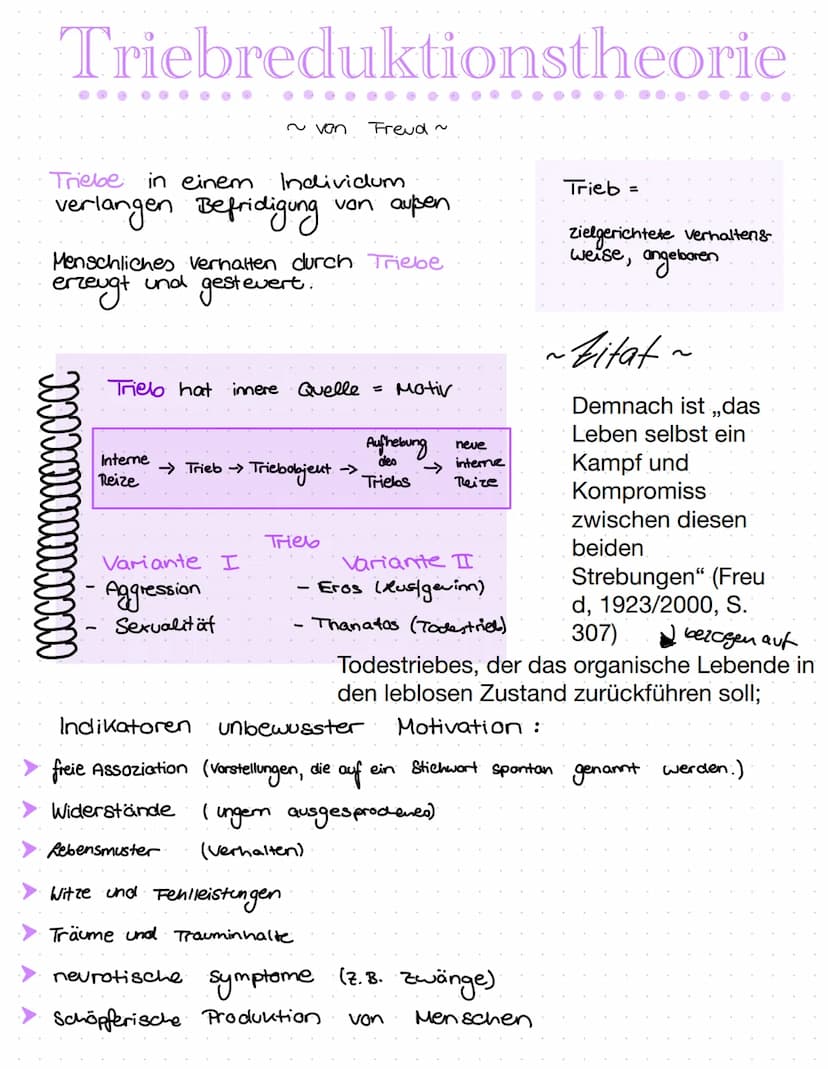 Triebreduktionstheorie
~ von Freud ~
Triebe in einem Individum
verlangen Befridigung von außen
Menschliches Verhalten durch Triebe
erzeugt und gesteuert.
Trieb =
zielgerichtete Verhaltens-
weise, angeboren
Trieb hat innere Quelle = Motiv
Interne Reize → Trieb → Triebobjekt → Aufhebung des Triebs → neue interne Reize
Trieb
Variante I
- Aggression
- Sexualität
Variante II
- Eros (Lustgewinn)
- Thanatos (Todestrieb)
~ Zitat ~
Demnach ist „das
Leben selbst ein
Kampf und
Kompromiss
zwischen diesen
beiden
Strebungen“ (Freu
d, 1923/2000, S.
307)
bezogen auf
Todestriebes, der das organische Lebende in
den leblosen Zustand zurückführen soll;
Indikatoren unbewusster Motivation :
➤ freie Assoziation (Vorstellungen, die auf ein Stichwort spontan genannt werden.)
➤ Widerstände ( ungern ausgesprochenes)
➤ Lebensmuster (Verhalten)
➤ Witze und Fehlleistungen
➤ Träume und Trauminhalte
➤ neurotische Symptome (z.B. Zwänge)
➤ Schöpferische Produktion von Menschen